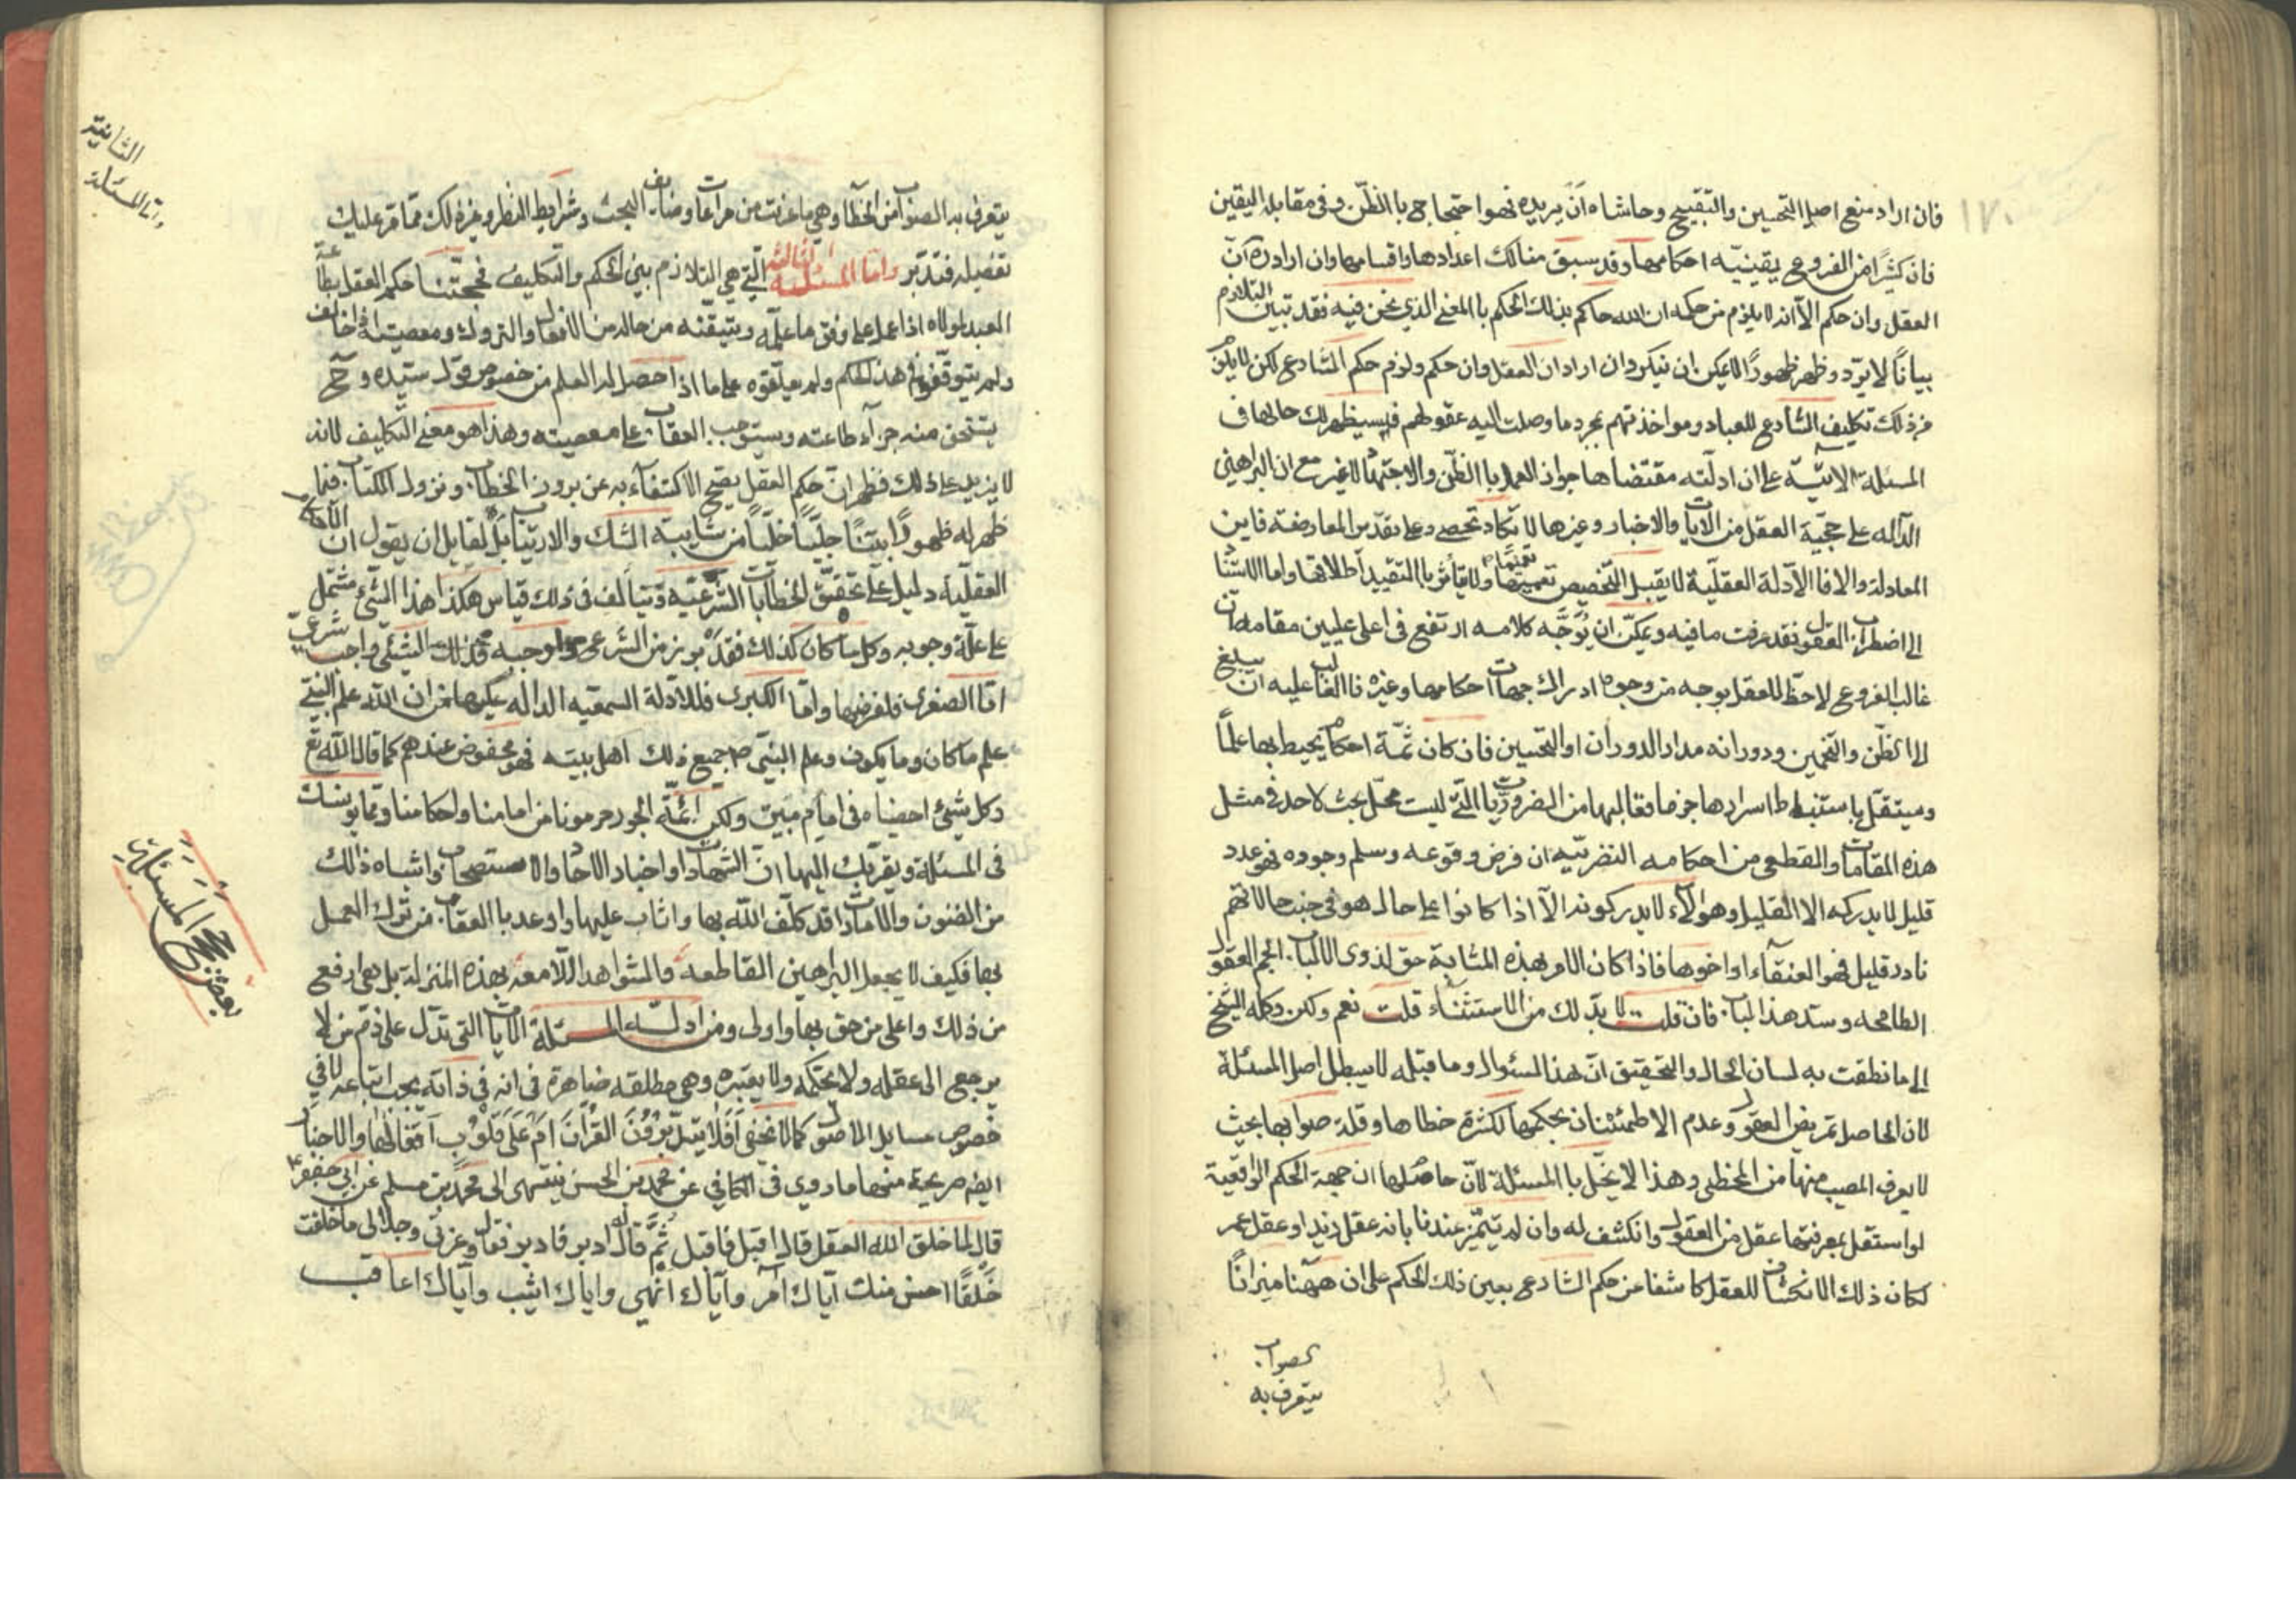 ١٧٠
فان اراد منع اصل التحسين والتقبيح وحاشاه ان يريده فهو احتجاج بالظن وفى مقابلة اليقين
فان كثيرًا من الفروع يقينيه احكامها وقد سبق منا لك اعدادها واقسامها وان اراد ان
العقل وان حكم الا انه لا يلزم من حكمه ان الله حاكم بذلك الحكم بالمعنى الذي نحن فيه فقد تبين التلازم
بيانًا لا يرد وظهر ظهورًا لا يمكن ان ينكر وان اراد ان العقل وان حكم ولزم حكم الشارع لكن لا يلزم
من ذلك تكليف الشارع للعباد ومواخذتهم بمجرد ما وصلت اليه عقولهم فسيظهر لك حالها فى
المسئلة الاتيه على ان ادلته مقتضاها جواز العمل بالظن والاجتهاد لا غير مع ان البراهين
الداله على حجية العقل من الايات والاخبار وغيرها لا تكاد تحصى وعلى تقدير المعارضه فاين
المعادلة والا فالادلة العقلية لا يقبل التخصيص تعميمها ولا يتأثر بالتقييد اطلاقها واما الاستناد
الى اضطراب العقول فقد عرفت ما فيه ويمكن ان يُوَجَّه كلامه ارتفع فى اعلى عليين مقامه ان
غالب الفروع لا حظ للعقل بوجه من وجوه ادراك جهات احكامها وغيره فالغالب عليه ان يبلغ
الا الظن والتخمين ودورانه مدار الدوران او التحسين فان كان ثمّة احكام يحيط بها علمًا
ويستقل باستنباط اسرارها جزما فغالبها من الضروريات التى ليست محل بحث لاحد فى مثل
هذه المقامات والقطعى من احكامه النضريه ان فرض وقوعه وسلم وجوده فهو عدد
قليل لا يدركه الا القليل وهؤلاء لا يدركونه الا اذا كانوا على حال هو فى جنب حالاتهم
نادر قليل فهو العنقاء او اخوها فاذا كان الامر بهذه المثابة حق لذوى الالباب الجم العقول
الطامحه وسد هذا الباب فان قلت لا بد لك من الاستثناء قلت نعم ولكن وكله الشيخ
الى ما نطقت به لسان الحال والتحقيق ان هذا السئوال وما قبله لا يبطل اصل المسئلة
لان الحاصل تمريض العقول وعدم الاطمئنان بحكمها لكثرة خطاها وقلة صوابها بحيث
لا يعرف المصيب منها من المخطى وهذا لا يخل بالمسئلة لان حاصلها ان جهة الحكم الواقعية
لو استقل بمعرفتها عقل من العقول وانكشف له وان لم يتميز عندنا بانه عقل زيد او عقل عمر
لكان ذلك الانكشاف للعقل كاشفا من حكم الشارع بعين ذلك الحكم على ان ههنا ميزانًا
لصواب
يتعرف به
يتعرف به الصواب من الخطأ وهي ما عرفت من مراعات وضايف البحث وشرايط النظر وغير ذلك مما قر عليك
تفصيله فتدبر واما المسئلة الثالثة التي هي التلازم بين الحكم والتكليف فحجتنا حكم العقل بطاعة
العبد لمولاه اذا عمل على وفق ما علمه ويتيقنه من حاله من الافعال والتروك ومعصيته اذا خالف
ولم يتوقفوا فى هذا الحكم ولم يعلقوه على ما اذا حصل له العلم من خصوص قول سيده وح
يستحق منه جزاء طاعته ويستوجب العقاب على معصيته وهذا هو معنى التكليف لانه
لا يزيد على ذلك فظهر ان حكم العقل يصح الاكتفاء به عن بروز الخطاب ونزول الكتاب فيما
ظهر له ظهورًا بينًا جليًا خليًا من شايبة الشك والارتياب بل لقايل ان يقول ان الادلة
العقلية دليل على تحقق الخطابات الشرعيه وتيألف فى ذلك قياس هكذا هذا الشئ مشتمل
على علة وجوبه وكل ما كان كذلك فقد برز من الشرع وجوبه فذلك الشئ واجب شرعي
اما الصغرى فلفرضها واما الكبرى فللادلة السمعيه الداله عليها من ان الله علم النبي
علم ما كان وما يكون وعلم النبى ص جميع ذلك اهل بيته فهو محفوض عندهم كما قال الله تع
وكل شئ احصيناه فى امام مبين ولكن ائمة الجور حرمونا من امامنا واحكامنا ومما يونسك
فى المسئلة ويقربك اليها ان الشهادات او اخبار الاحاد والاستصحاب واشباه ذلك
من الضنون والامارات قد كلف الله بها واثاب عليها واوعد بالعقاب من ترك العمل
بها فكيف لا يجعل البراهين القاطعة والشواهد اللامعة بهذه المنزلة بل هى ارفع
من ذلك واعلى من حق بها واولى ومن ادلة المسئلة الايات التى تدل على ذم من لا
يرجع الى عقله ولا يحكمه ولا يعتبره وهى مطلقه ضاهرة فى انه فى ذاته يجب اتباعه لا في
خصوص مسايل الاصول كما لا يخفى اَفَلا يَتَدَبَّرُونَ القُرْآنَ اَمْ عَلَى قُلُوبٍ اَقْفَالُهَا والاخبار
ايضم صريحة منها ما روي فى الكافي عن محمد بن الحسن ينتهى الى محمد بن مسلم عن ابي جعفر ع
قال لما خلق الله العقل قال له اقبل فاقبل ثم قال له ادبر فادبر فقال وعزتي وجلالى ما خلقت
خلقًا احسن منك اياك آمر واياك انهى واياك اثيب واياك اعاقب
الثانية
واما المسئلة